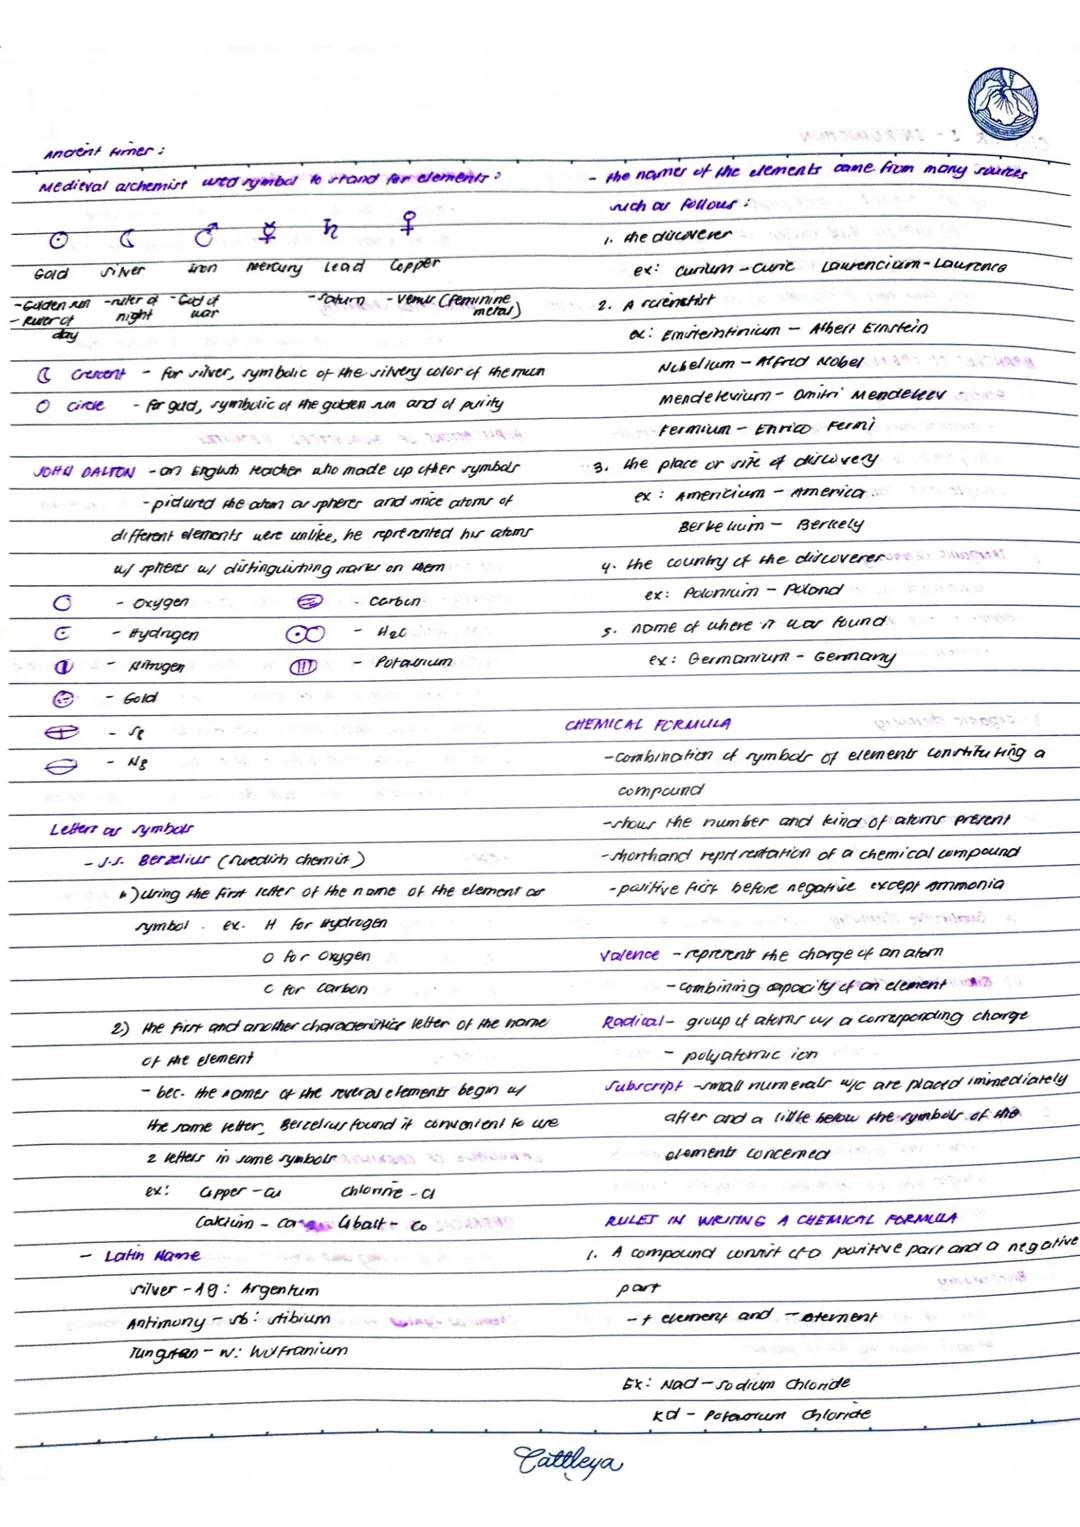 Ancient times :
Medieval alchemist used symbol to stand for elements :
☉ ☾ ♂ ☿ ♄ ♀
Gold Silver Iron Mercury Lead Copper
-Golden sun -ruler of -God of -Saturn -Venus (feminine
- Ruler of night war metal)
day
☾ Crescent - for silver, symbolic of the silvery color of the mun
O circle - for gold, symbolic of the golden sun and of purity
JOHN DALTON - an English teacher who made up other symbols
- pictured the atom as spheres and since atoms of
different elements were unlike, he represented his atoms
w/ spheres w/ distinguishing marks on them
- Oxygen - Carbon
- Hydrogen - H2O
- Nitrogen - Potassium
- Gold
- Se
- Ng
Letters as symbols
- J.J. Berzelius (Swedish chemist)
1) using the first letter of the name of the element as
symbol . ex. H for Hydrogen
O for Oxygen
C for Carbon
2) the first and another characteristics letter of the name
of the element
- bec. the names of the several elements begin w/
the same letter, Berzelius found it convenient to use
2 letters in some symbols
ex: Copper - Cu Chlorine - Cl
Calcium - Ca Cobalt - Co
- Latin Name
Silver - Ag : Argentum
Antimony - Sb : Stibium
Tungsten - W : Wolfranium
- the names of the elements came from many sources
such as follows :
1. the discoverer
ex: Curium - Curie Laurenciam - Laurence
2. A scientist
ex: Einsteintinium - Albert Einstein
Nobelium - Alfred Nobel
Mendelevium - Dmitri Mendeleev
Fermium - Enrico Fermi
3. the place or site of discovery
ex : Americium - America
Berkelium - Berkely
4. the country of the discoverer
ex: Polonium - Poland
5. name of where it was found
ex: Germanium - Germany
CHEMICAL FORMULA
- combination of symbols of elements constituting a
compound
- shows the number and kind of atoms present
- shorthand representation of a chemical compound
- positive first before negative except ammonia
Valence - represents the charge of an atom
- combining capacity of an element
Radical - group of atoms w/ a corresponding charge
- polyatomic ion
Subscript - small numerals w/c are placed immediately
after and a little below the symbols of the
elements concerned
RULES IN WRITING A CHEMICAL FORMULA
1. A compound consist of a positive part and a negative
part
- + element and - element
Ex: NaCl - Sodium Chloride
KCl - Potassium Chloride
Cattleya